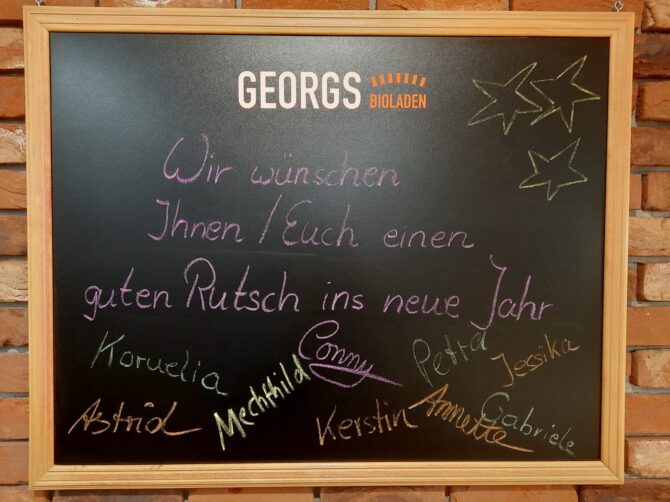 GEORGS BIOLADEN
Wir wünschen
Ihnen / Euch einen
guten Rutsch ins neue Jahr
Kornelia Conny Petra Jessika
Astrid Mechthild Kerstin Annette Gabriele